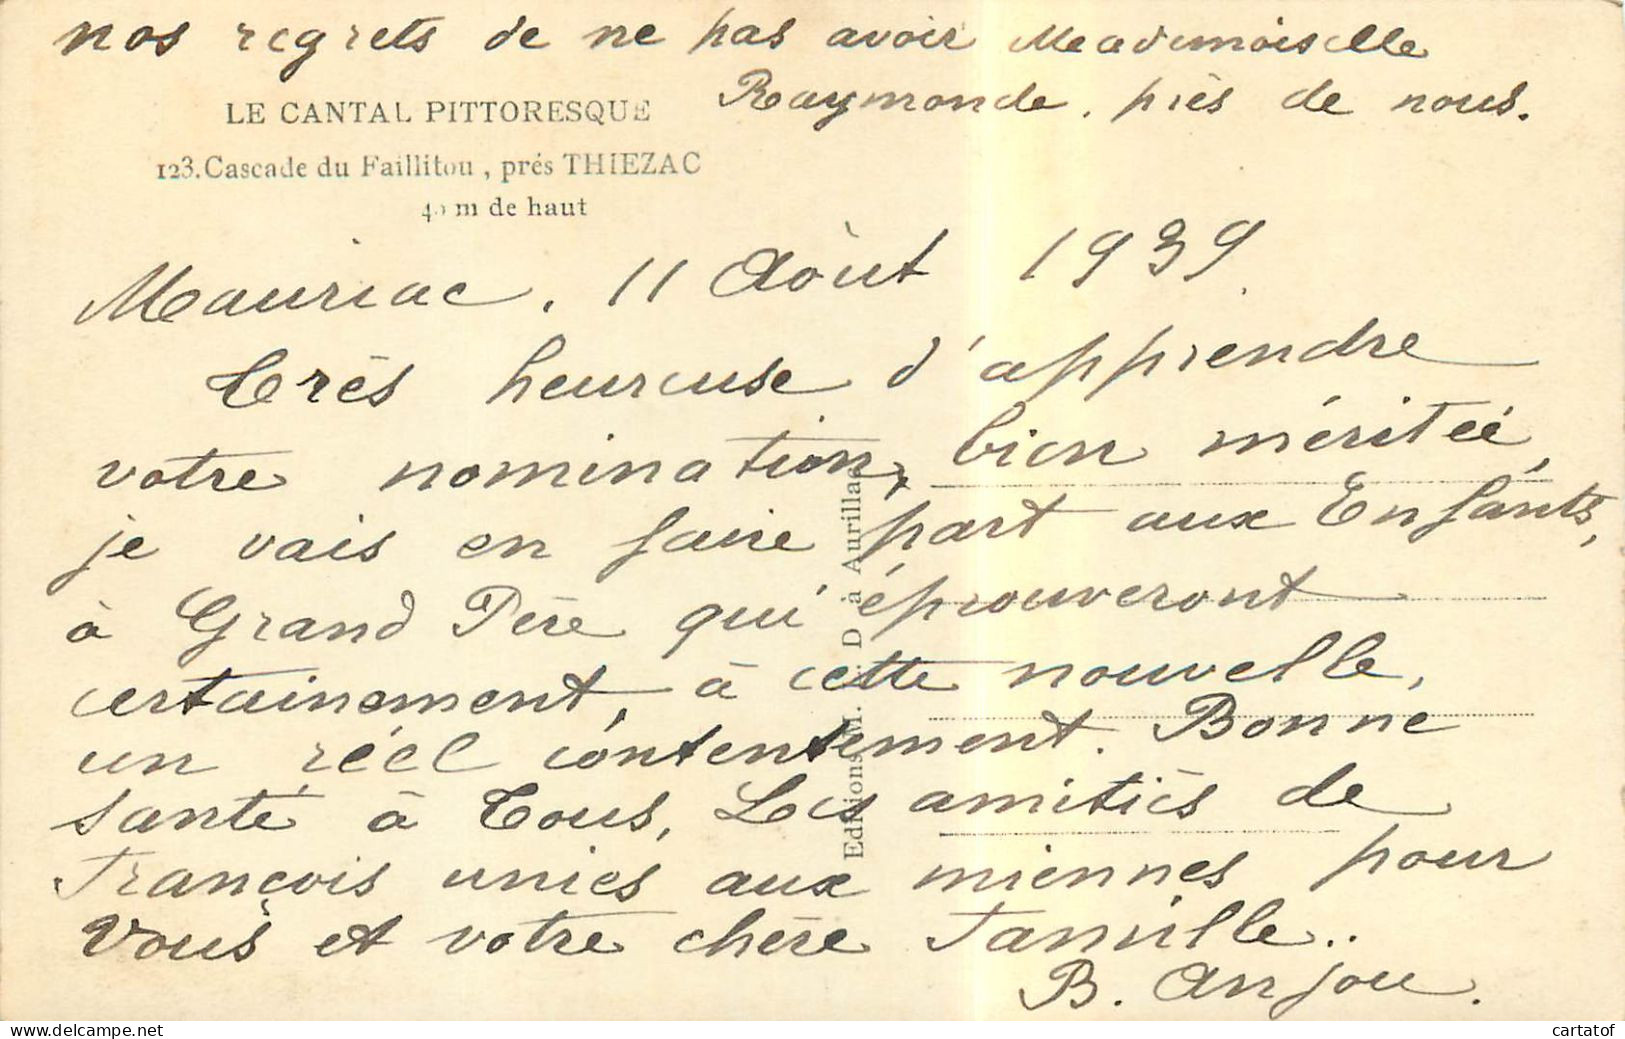 nos regrets de ne pas avoir Mademoiselle
Raymonde, près de nous.
LE CANTAL PITTORESQUE
123. Cascade du Faillitou, prés THIEZAC
40 m de haut
Mauriac, 11 Aòut 1939.
Très heureuse d'apprendre
votre nomination, bien méritée,
je vais en faire part aux Enfants,
à Grand Père qui éprouveront
certainement, à cette nouvelle,
un réel contentement. Bonne
santé à Tous, Les amitiés de
François unies aux miennes pour
Vous et votre chère Famille..
B. Anjou.
Editions M. D à Aurillac
cartatof